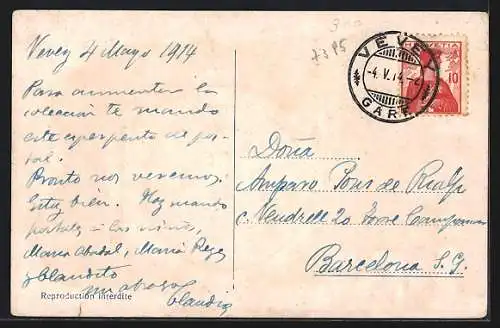 Vevey 4 Mayo 1914
Para aumentar la
colección te mando
este esperpento de pos-
tal.
Pronto nos veremos.
Estoy bien. Hoy mando
postales a las niñas,
Maria Abadal, Maria Reyes
y Claudito
un abrazo
Claudio
Reproduction interdite
7395
VEVEY
-4.V.14.-
GARE
HELVETIA
10
Doña
Amparo Pons de Rialp
c. Vendrell 20 Torre
Barcelona S. G.